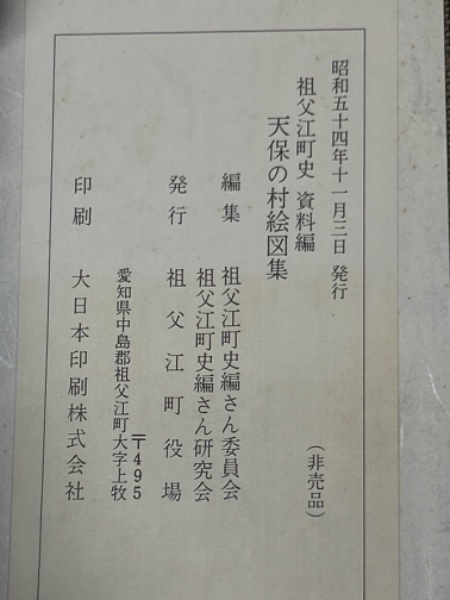 昭和五十四年十一月三日 発行
祖父江町史 資料編
天保の村絵図集
（非売品）
編集 祖父江町史編さん委員会
祖父江町史編さん研究会
発行 祖父江町役場
〒495
愛知県中島郡祖父江町大字上牧
印刷 大日本印刷株式会社